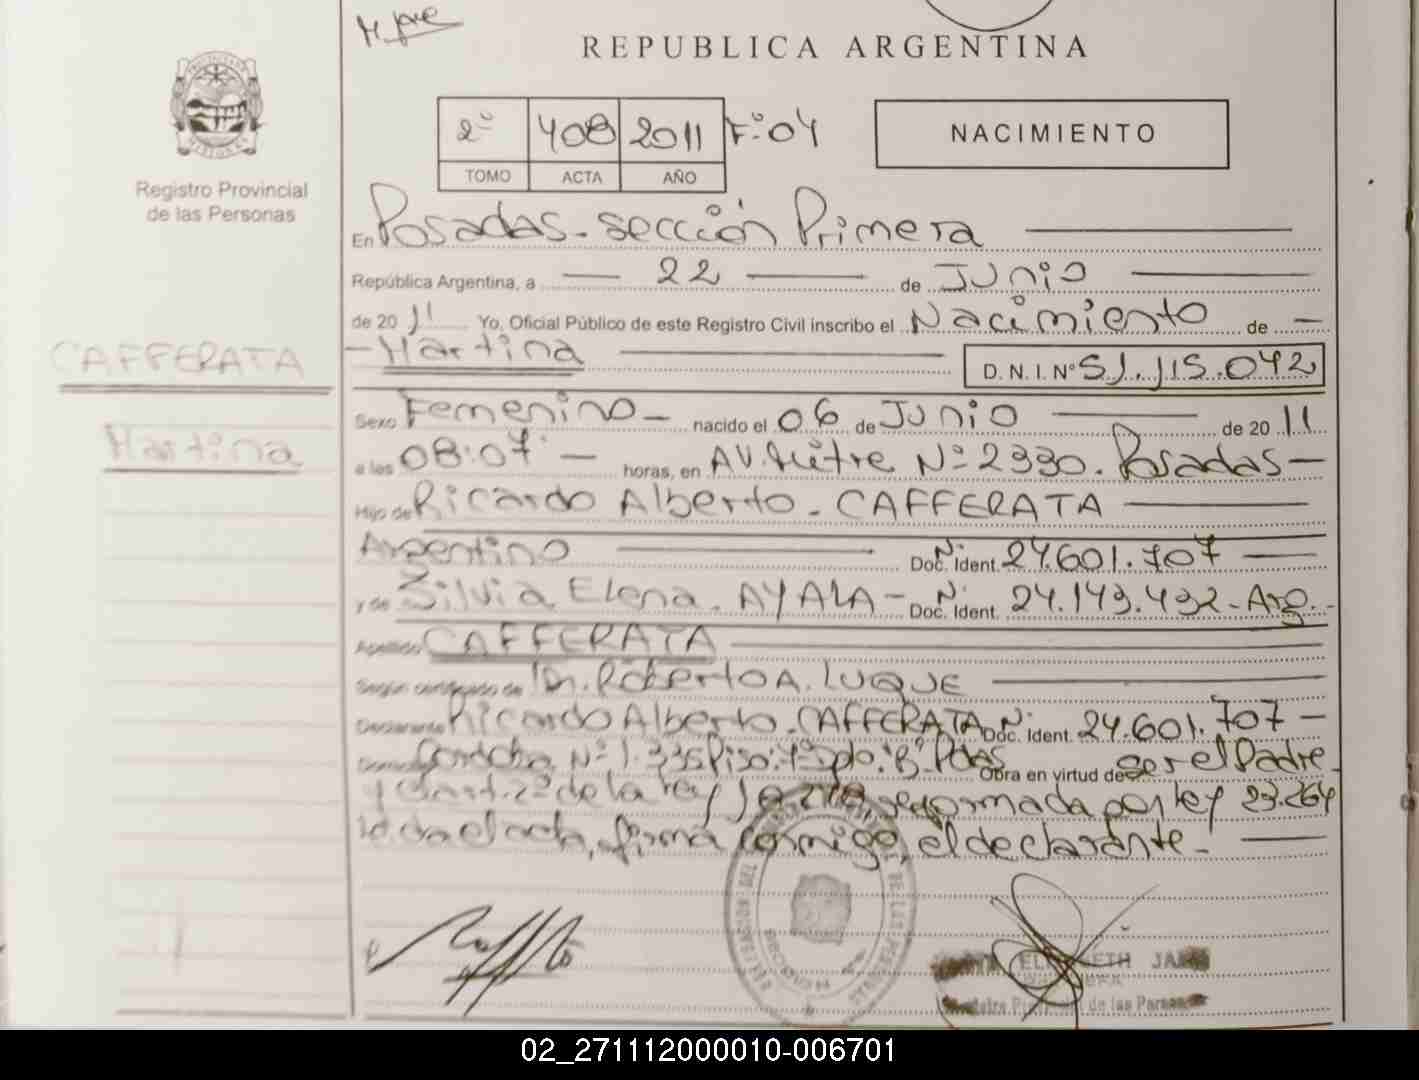 REPUBLICA ARGENTINA
2º 408 2011 Fº 04
TOMO ACTA AÑO
NACIMIENTO
Registro Provincial
de las Personas
En Posadas - sección Primera
República Argentina, a 22 de Junio
de 20 11 Yo, Oficial Público de este Registro Civil inscribo el Nacimiento de
Martina D. N. I. Nº 51.115.042
CAFFERATA
Martina
Sexo Femenino nacido el 06 de Junio de 20 11
a las 08:07 horas, en AV. Mitre Nº 2330. Posadas
Hijo de Ricardo Alberto - CAFFERATA
Argentino Doc. Ident. Nº 24.601.707
y de Silvia Elena. AYALA - Doc. Ident. Nº 24.143.432 - Arg.
Apellido CAFFERATA
Según certificado de Dr. Roberto A. LUQUE
Declarante Ricardo Alberto. CAFFERATA Doc. Ident. Nº 24.601.707
Nº 1.335 Piso: "B" Pdas Obra en virtud de ser el Padre
y de la ley reformada por ley 23.264
el acta, firma conmigo, el declarante.
ELIZABETH
de las Personas
02_271112000010-006701